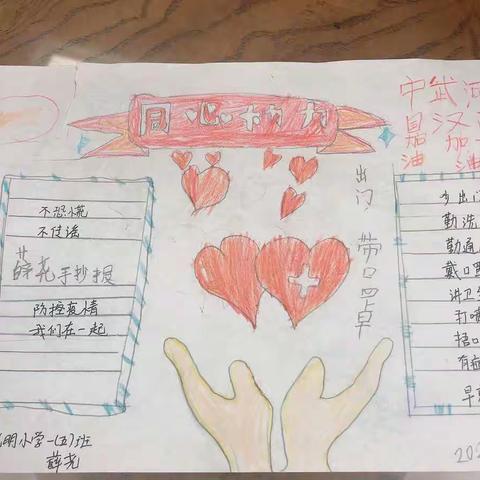 同心协力
中 武 河
昌 汉
油 加
油
不恐慌
不传谣
薛尧手抄报
防控疫情
我们在一起
出门,带口罩
少出门
勤洗
勤通
戴口罩
讲卫生
打喷
捂口
有症
早
明小学一(五)班
薛尧
202